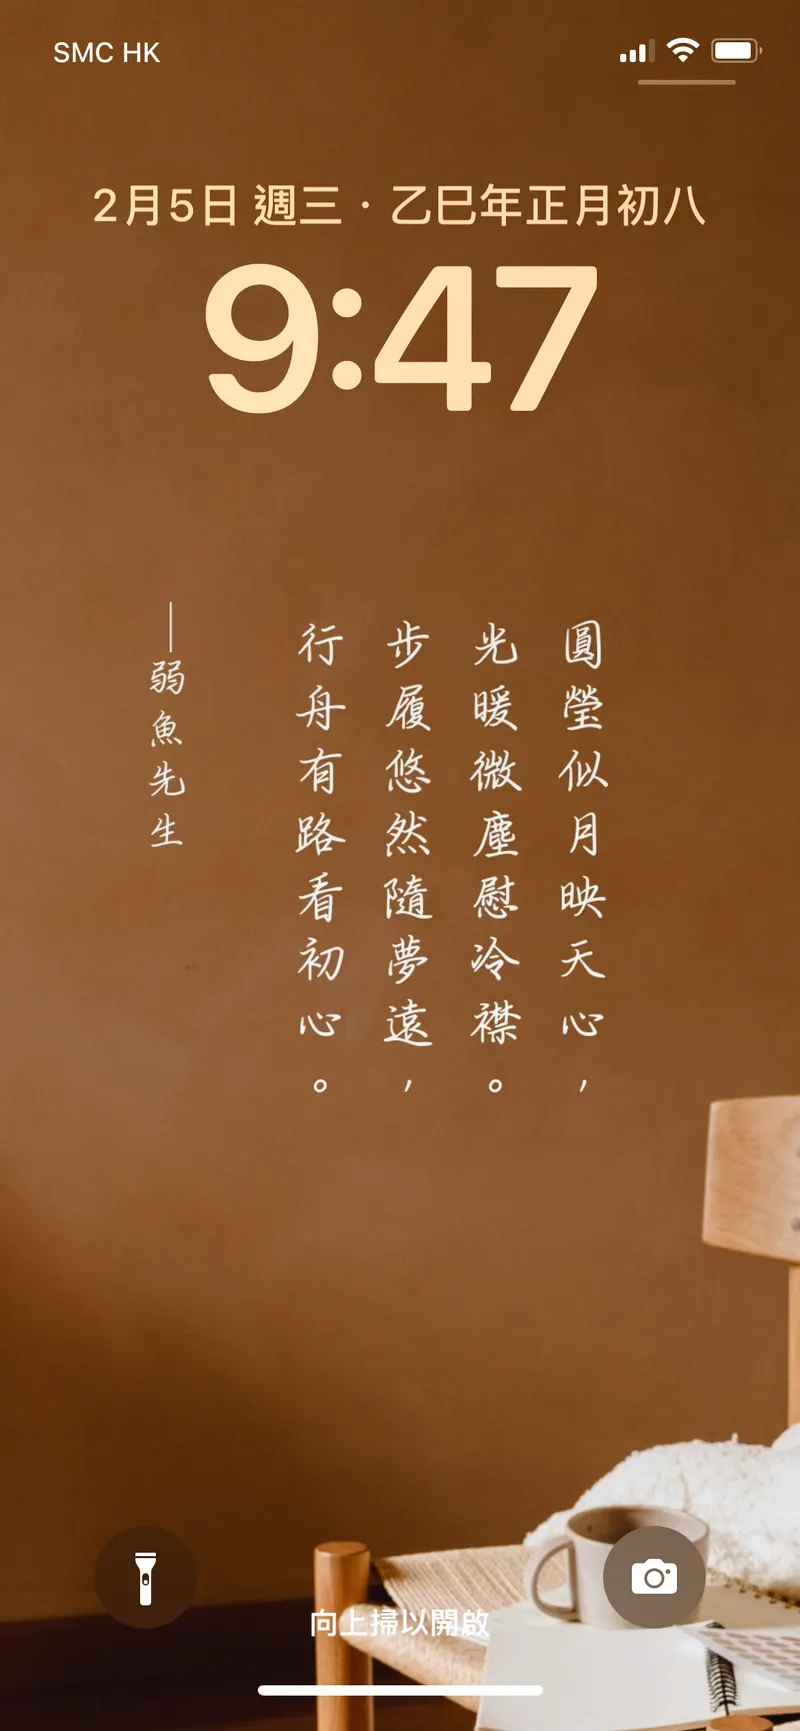 SMC HK
2月5日 週三·乙巳年正月初八
9:47
圓瑩似月映天心，
光暖微塵慰冷襟。
步履悠然隨夢遠，
行舟有路看初心。
—弱魚先生
向上掃以開啟